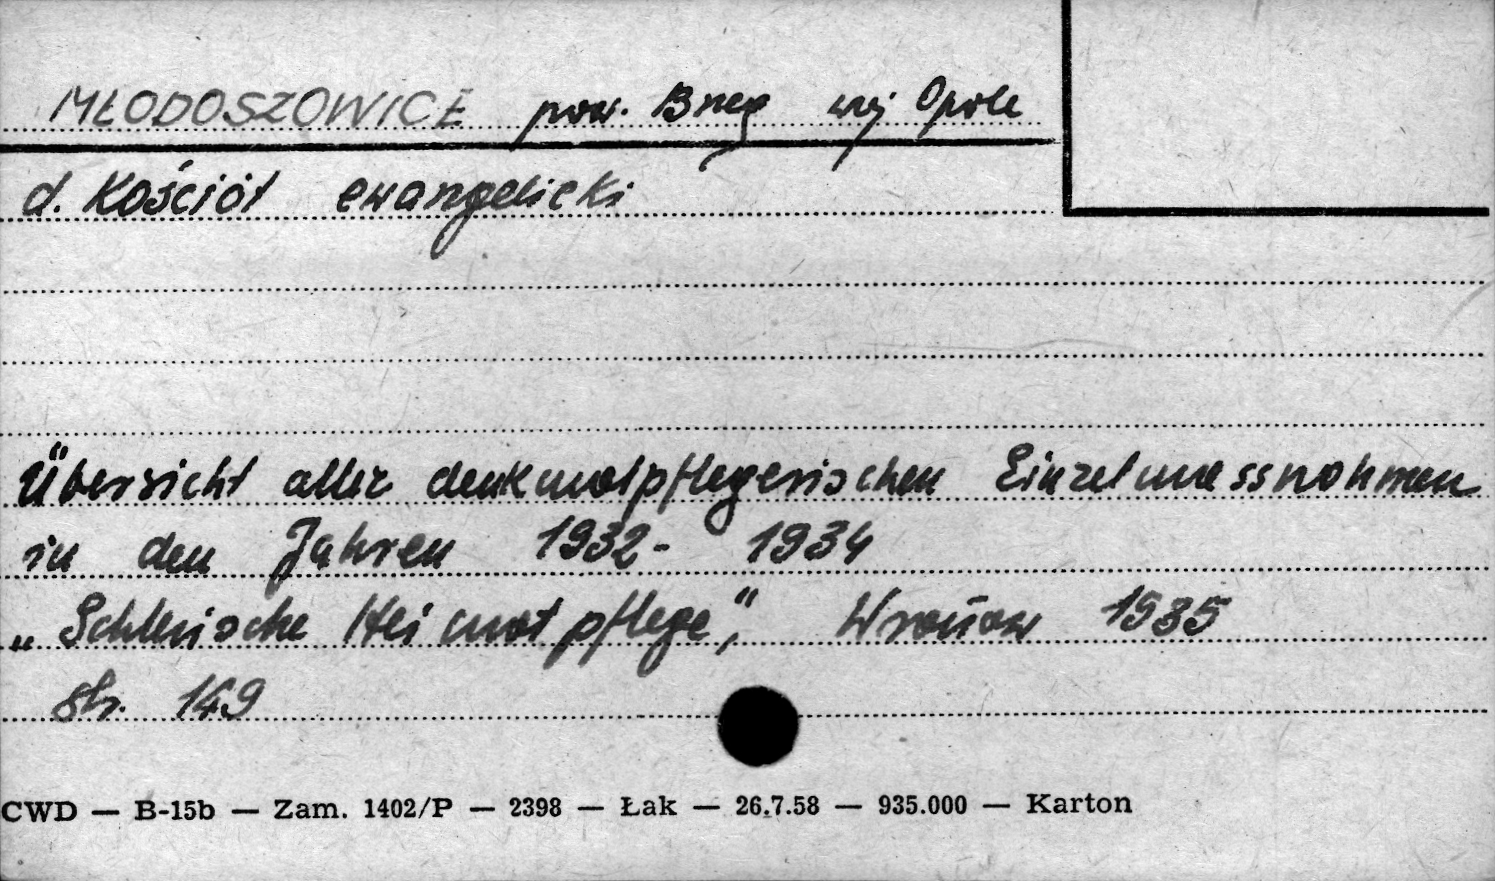 MŁODOSZOWICE pow. Brzeg woj Opole
d. Kościół ewangelicki
Übersicht aller denkmalpflegerischen Einzelmassnahmen
in den Jahren 1932- 1934
„Schlesische Heimatpflege", Wrocław 1935
str. 149
CWD — B-15b — Zam. 1402/P — 2398 — Łak — 26.7.58 — 935.000 — Karton